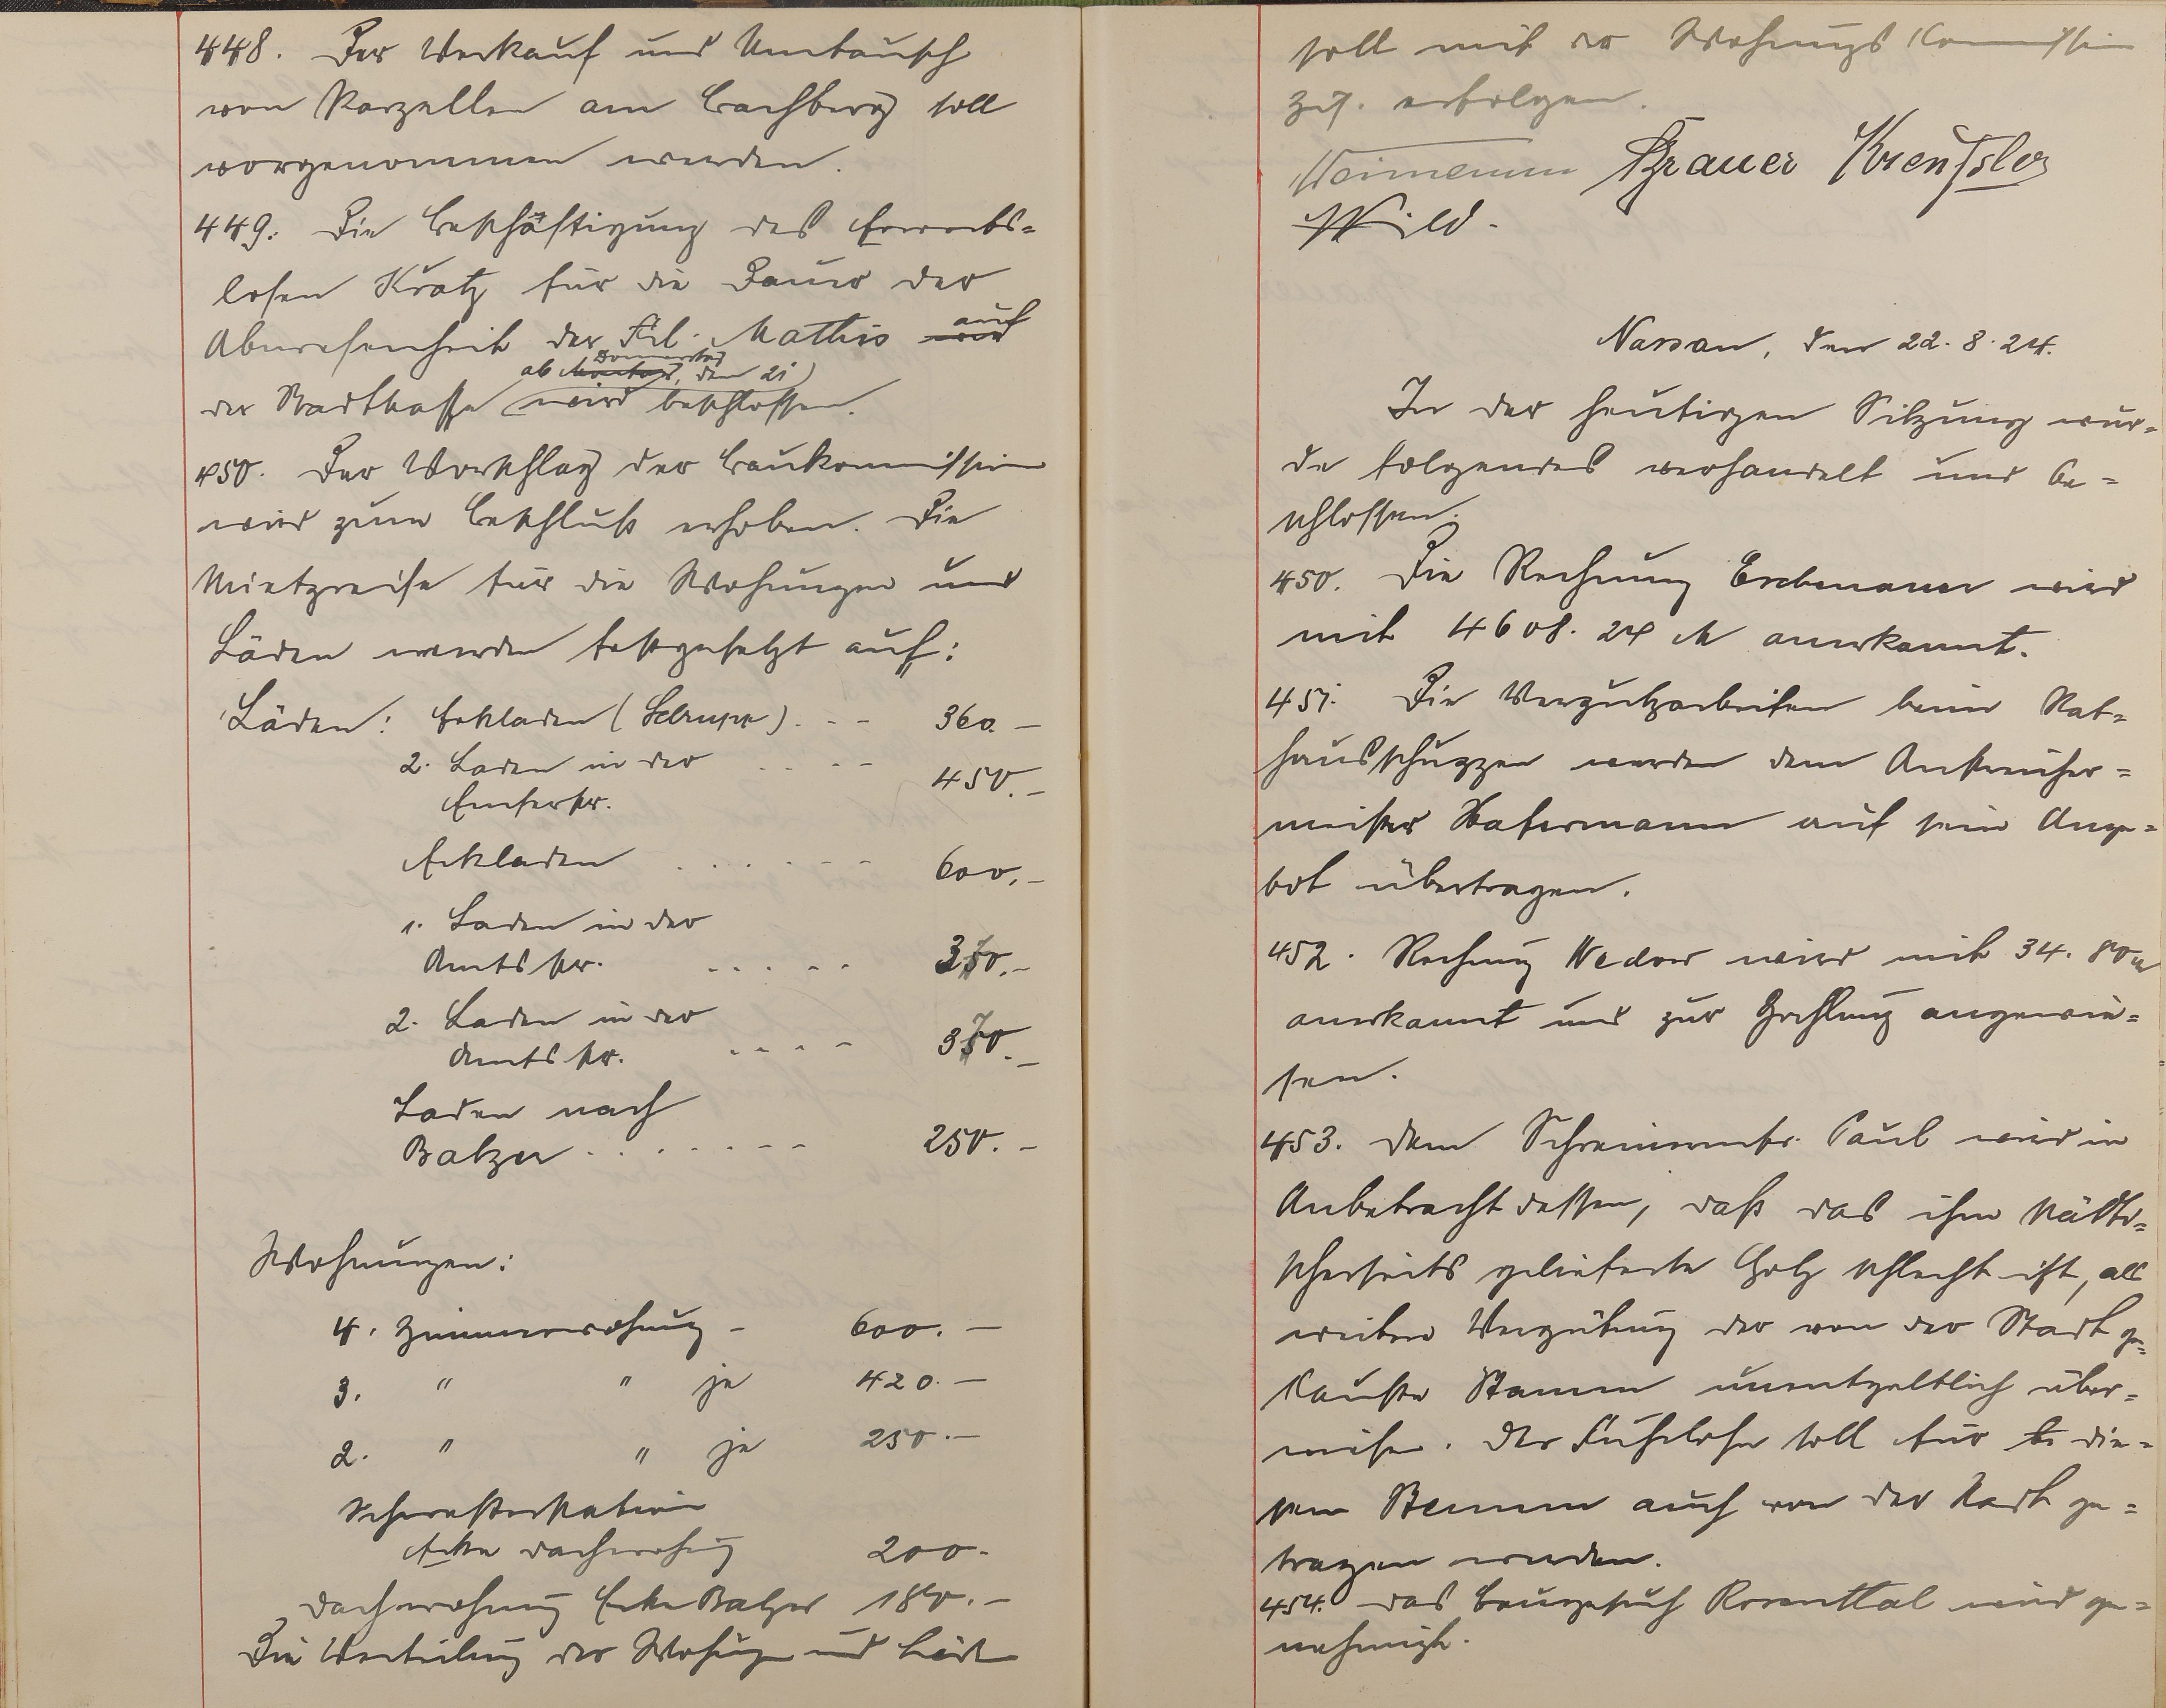 448. Der Verkauf und Umtausch
von Parzellen am Bachberg soll
vorgenommen werden.
449. Die Beschäftigung des Erwerbs-
losen Kratz für die Dauer der
Abwesenheit der Frl. Mathis auf
ab Donnerstag, den 21
der Stadtkasse wird beschlossen.
450. Der Vorschlag der Baukommission
wird zum Beschluß erhoben. Die
Mietpreise für die Wohnungen und
Läden werden festgesetzt auf:
Läden: Eckladen (Schrupp) - - 360.-
2. Laden in der .... 450.-
Emserstr.
Eckladen ...... 600.-
1. Laden in der
Amtsstr. ..... 370.-
2. Laden in der
Amtsstr. .... 370.-
Laden nach
Balzer ....... 250.-
Wohnungen:
4. Zimmerwohnung - 600.-
3. " " je 420.-
2. " " je 250.-
Schwesterstation
Ecke Dachwohng 200.
Dachwohnung Ecke Balzer 180.-
Die Verteilung der Wohnungen und Läden
soll mit der Wohnungs Kommission
zus. erfolgen.
Brauer Kreußler
Wild.
Nassau, den 22.8.24.
In der heutigen Sitzung wur-
de folgendes verhandelt und be-
schlossen.
450. Die Rechnung Erbenauer wird
mit 4608.24 M anerkannt.
451. Die Verputzarbeiten beim Rat-
hausschuppen werden dem Anstreicher-
meister Hafermann auf sein Ange-
bot übertragen.
452. Rechnung wird mit 34.80 M
anerkannt und zur Zahlung angewie-
sen.
453. Dem Schreinermstr. Paul wird in
Anbetracht dessen, daß das ihm städti-
scherseits gelieferte Holz schlecht ist, als
weitere Vergütung der von der Stadt ge-
kaufte Stamm unentgeltlich über-
wiesen. Der Fuhrlohn soll für be die-
sen Stamm auch von der Stadt ge-
tragen werden.
454. Das Baugesuch Rosenthal wird ge-
nehmigt.